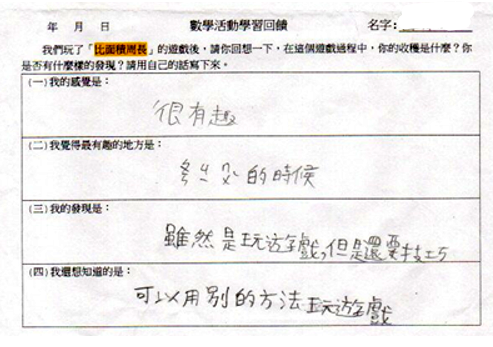 年 月 日 數學活動學習回饋 名字：
我們玩了「比面積周長」的遊戲後，請你回想一下，在這個遊戲過程中，你的收穫是什麼？你
是否有什麼樣的發現？請用自己的話寫下來。
(一)我的感覺是：
很有趣
(二)我覺得最有趣的地方是：
的時候
(三)我的發現是：
雖然是玩遊戲，但是還要技巧
(四)我還想知道的是：
可以用別的方法玩遊戲